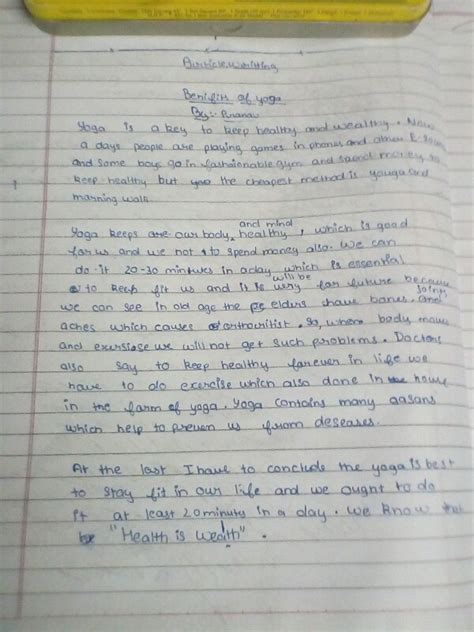 Article writing
Benifits of yoga
By:- Pranav
Yoga is a key to keep healthy and wealthy. Now
a days people are playing games in phones and other
and some boys go in fashionable gym and spend money to
keep healthy but the cheapest method is youga and
marning walk.
and mind
Yoga keeps our body, healthy, which is good
for us and we not to spend money also. We can
do it 20-30 minutes in a day which is essential
will be
to keep fit us and it is very for future because
we can see in old age the elders have bones and joints
aches which causes So, when body move
and exersise we will not get such problems. Doctors
also say to keep healthy forever in life we
have to do exercise which also done in house
in the form of yoga. Yoga contains many aasans
which help to preven us from deseases.
At the last I have to conclude the yoga is best
to stay fit in our life and we ought to do
it at least 20 minuty in a day. We know that
"Health is wealth".